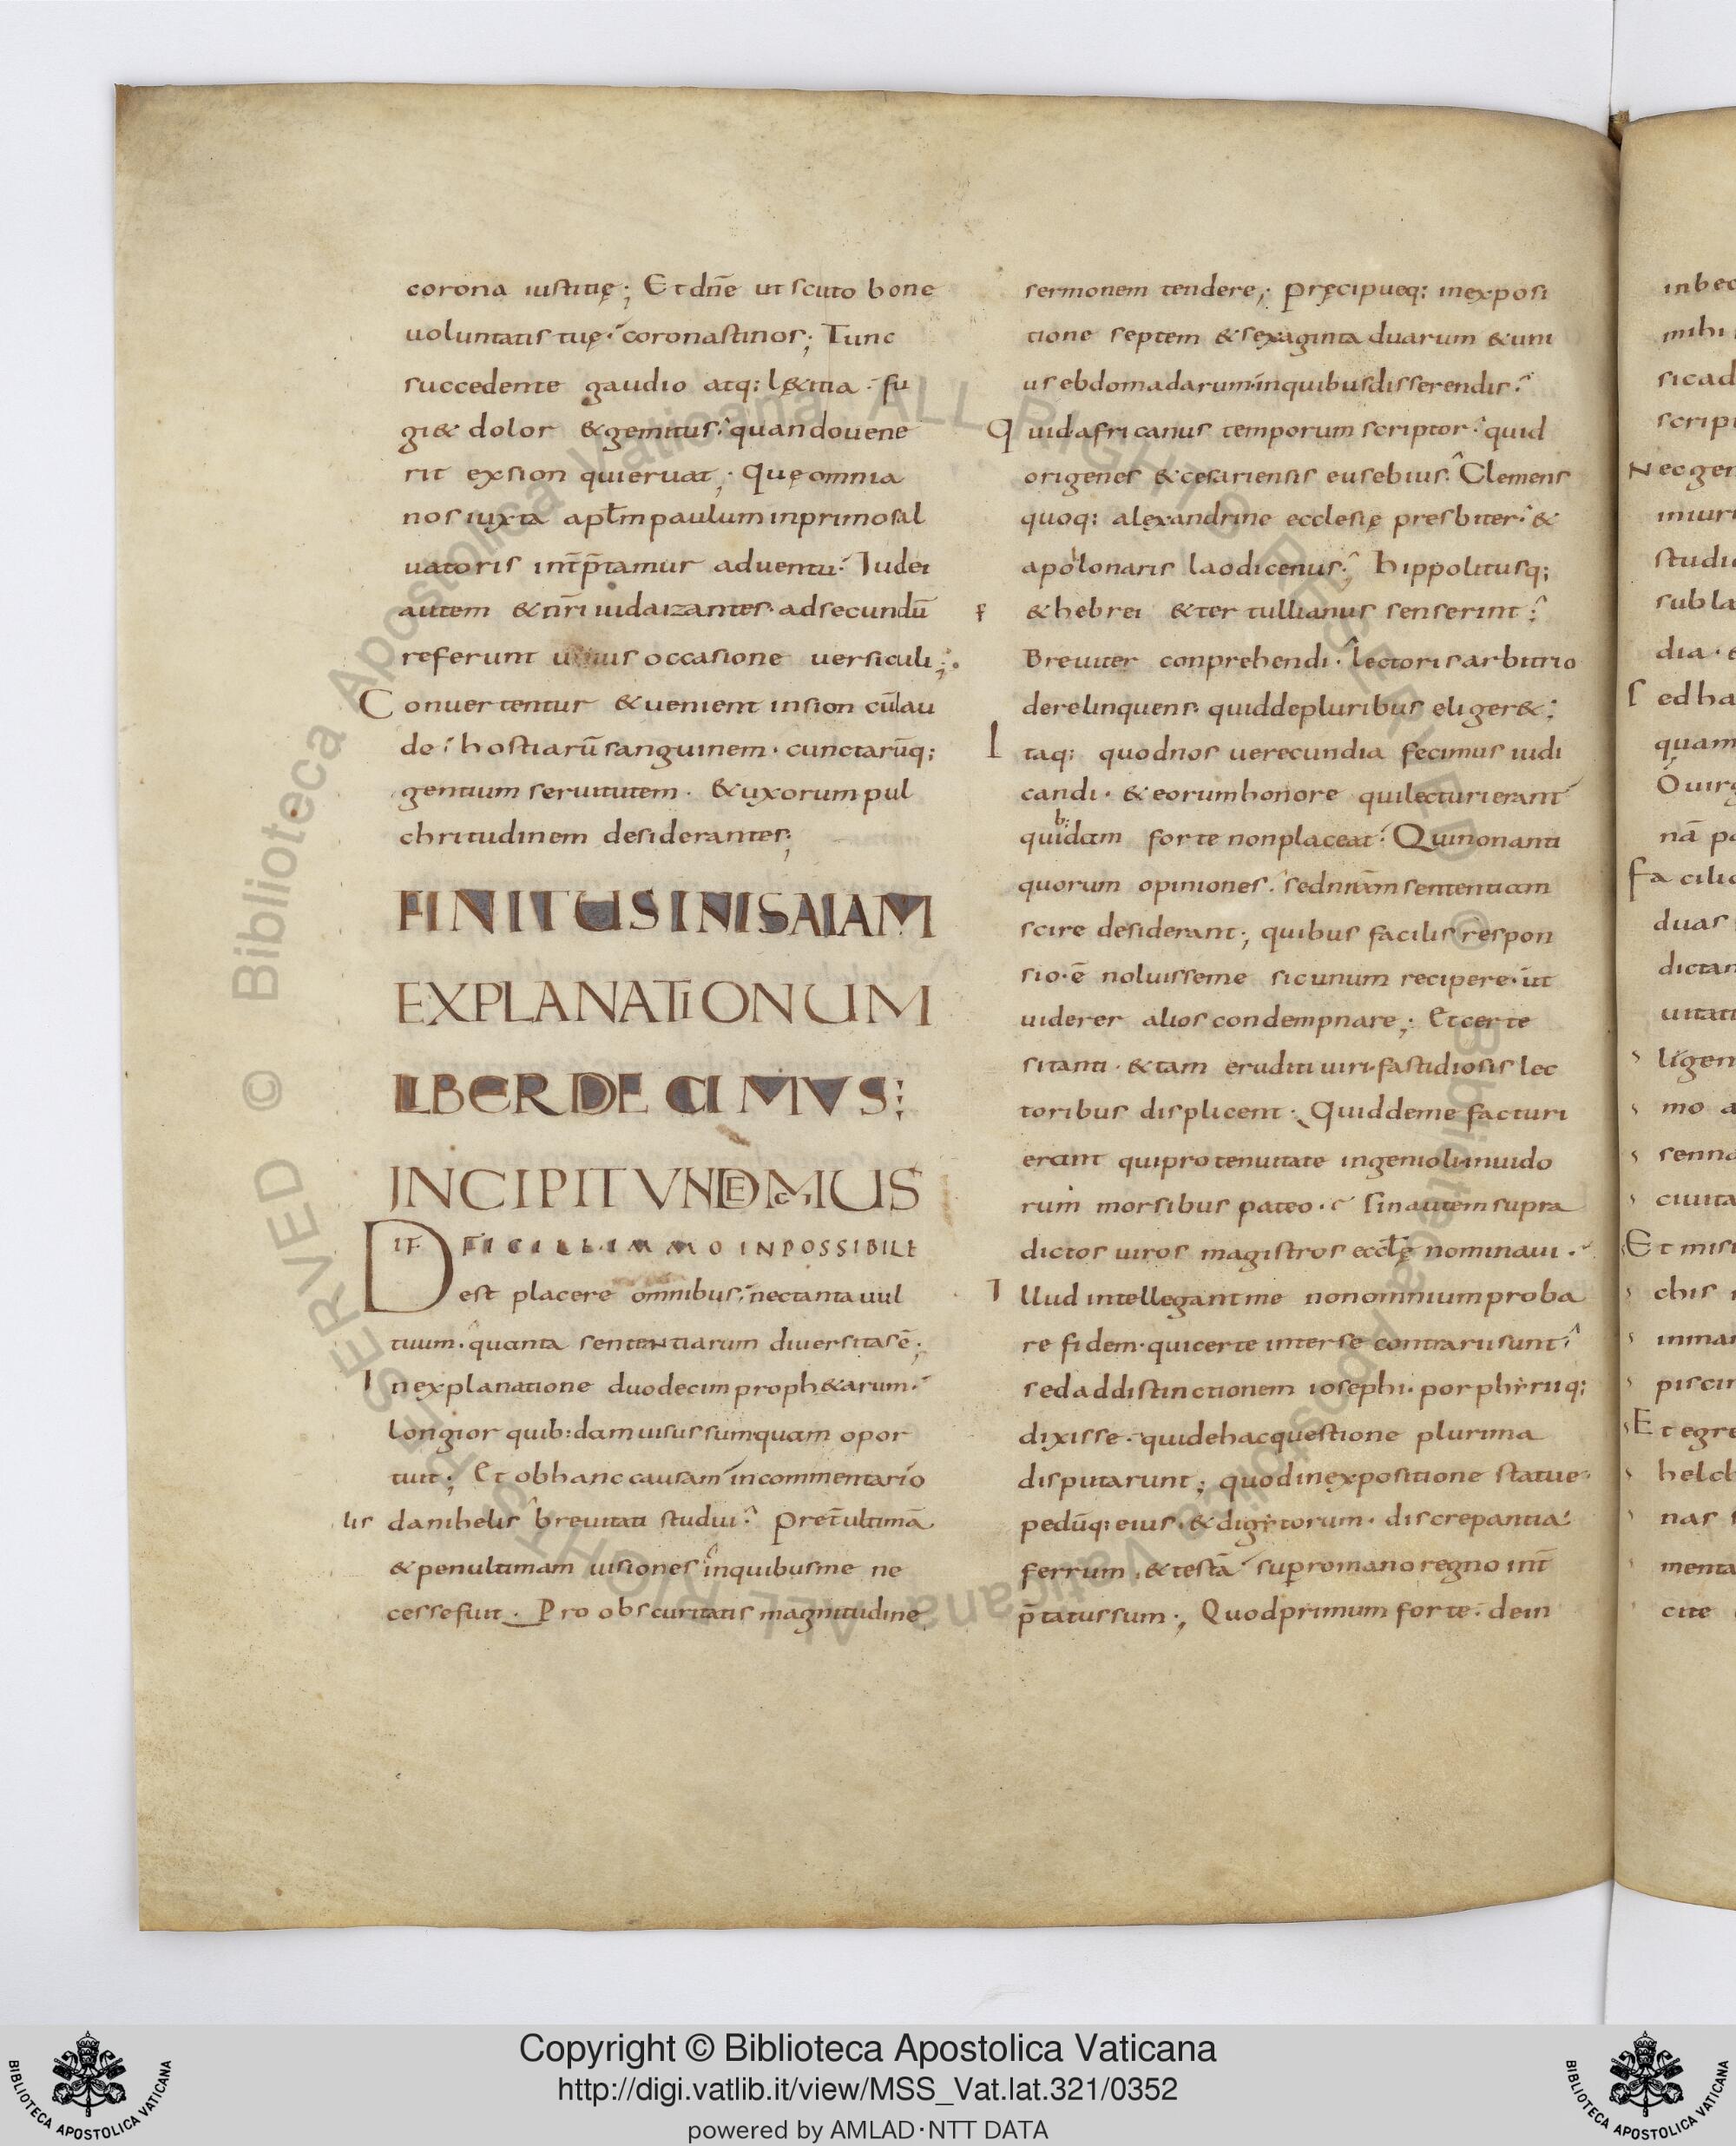 corona iustitię; Et dn̄e ut scuto bone
uoluntatis tuę· coronasti nos; Tunc
succedente gaudio atq: lę&itia · fu
gi& dolor & gemitus· quando uene
rit ex sion qui eruat; Quę omnia
nos iuxta apl̄m paulum in primo sal
uatoris int̄p̄tamur aduentu· Iudei
autem & nr̄i iudaizantes· ad secundū
referunt occasione uersiculi;
Conuertentur & uenient in sion cū lau
de· hostiarū sanguinem· cunctarūq:
gentium seruitutem· & uxorum pul
chritudinem desiderantes;
FINITUS IN ISAIAM
EXPLANATIONUM
LIBER DECIMVS:
INCIPIT VNDECIMUS
DIFFICILE IMMO INPOSSIBILE
est placere omnibus· nec tanta uul
tuum· quanta sententiarum diuersitas ē;
In explanatione duodecim proph&arum·
longior quib:dam uisus sum quam opor
tuit; Et ob hanc causam in commentario
lis danihelis breuitati studui· Pret̄ ultimā
& penultimam uisiones in quibus me ne
cesse fuit· Pro obscuritatis magnitudine
sermonem tendere; Pręcipueq: in exposi
tione septem & sexaginta duarum & uni
us ebdomadarum· in quibus disserendis·
Quid africanus temporum scriptor· quid
origenes & cesariensis eusebius· Clemens
quoq: alexandrine ecclesię presbiter· &
apollonaris laodicenus· hippolitusq;
& hebrei & tertullianus senserint·
Breuiter conprehendi· lectoris arbitrio
derelinquens· quid de pluribus eliger&;
Itaq: quod nos uerecundia fecimus iudi
candi· & eorum honore qui lecturi erant
quib:dam forte non placeat· Qui non anti
quorum opiniones· sed nrām sententiam
scire desiderant; quibus facilis respon
sio· ē noluisse me sic unum recipere· ut
uiderer alios condempnare; Et certe
si tanti· & tam eruditi uiri· fastidiosis lec
toribus displicent; Quid de me facturi
erant qui pro tenuitate ingenioli· inuido
rum morsibus pateo· sin autem supra
dictos uiros magistros eccl̄ę nominaui·
Illud intellegant me non omnium proba
re fidem· qui certe inter se contrarii sunt·
sed ad distinctionem iosephi· porphiriiq;
dixisse· qui de hac questione plurima
disputarunt; quod in expositione statue·
pedūq: eius· & digitorum· discrepantia·
ferrum· & testā sup romano regno int̄
p̄tatus sum·; Quod primum forte· dein
inbec
mihi
sicad
scrip
Necgen
iniuri
studi
subla
dia·
Sed ha
quam
O uirg
nā pa
Facilio
duas
dictan
uitati
ligen
mo a
senna
ciuita
Et misi
chis
inman
piscin
Et egre
helch
nas
menta
cite
Copyright © Biblioteca Apostolica Vaticana
http://digi.vatlib.it/view/MSS_Vat.lat.321/0352
powered by AMLAD·NTT DATA
BIBLIOTECA APOSTOLICA VATICANA
BIBLIOTECA APOSTOLICA VATICANA
© Biblioteca Apostolica Vaticana ALL RIGHTS RESERVED © Biblioteca Apostolica Vaticana ALL RIGHTS RESERVED